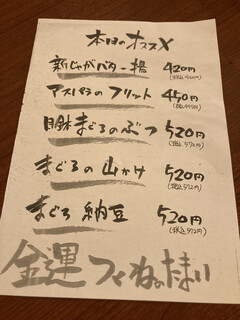 本日のオススメ
新じゃがバター揚 420円
(税込462円)
アスパラのフリット 450円
(税込495円)
まぐろのぶつ 520円
(税込572円)
まぐろの山かけ 520円
(税込572円)
まぐろ納豆 520円
(税込572円)
金運 つくねのたまい